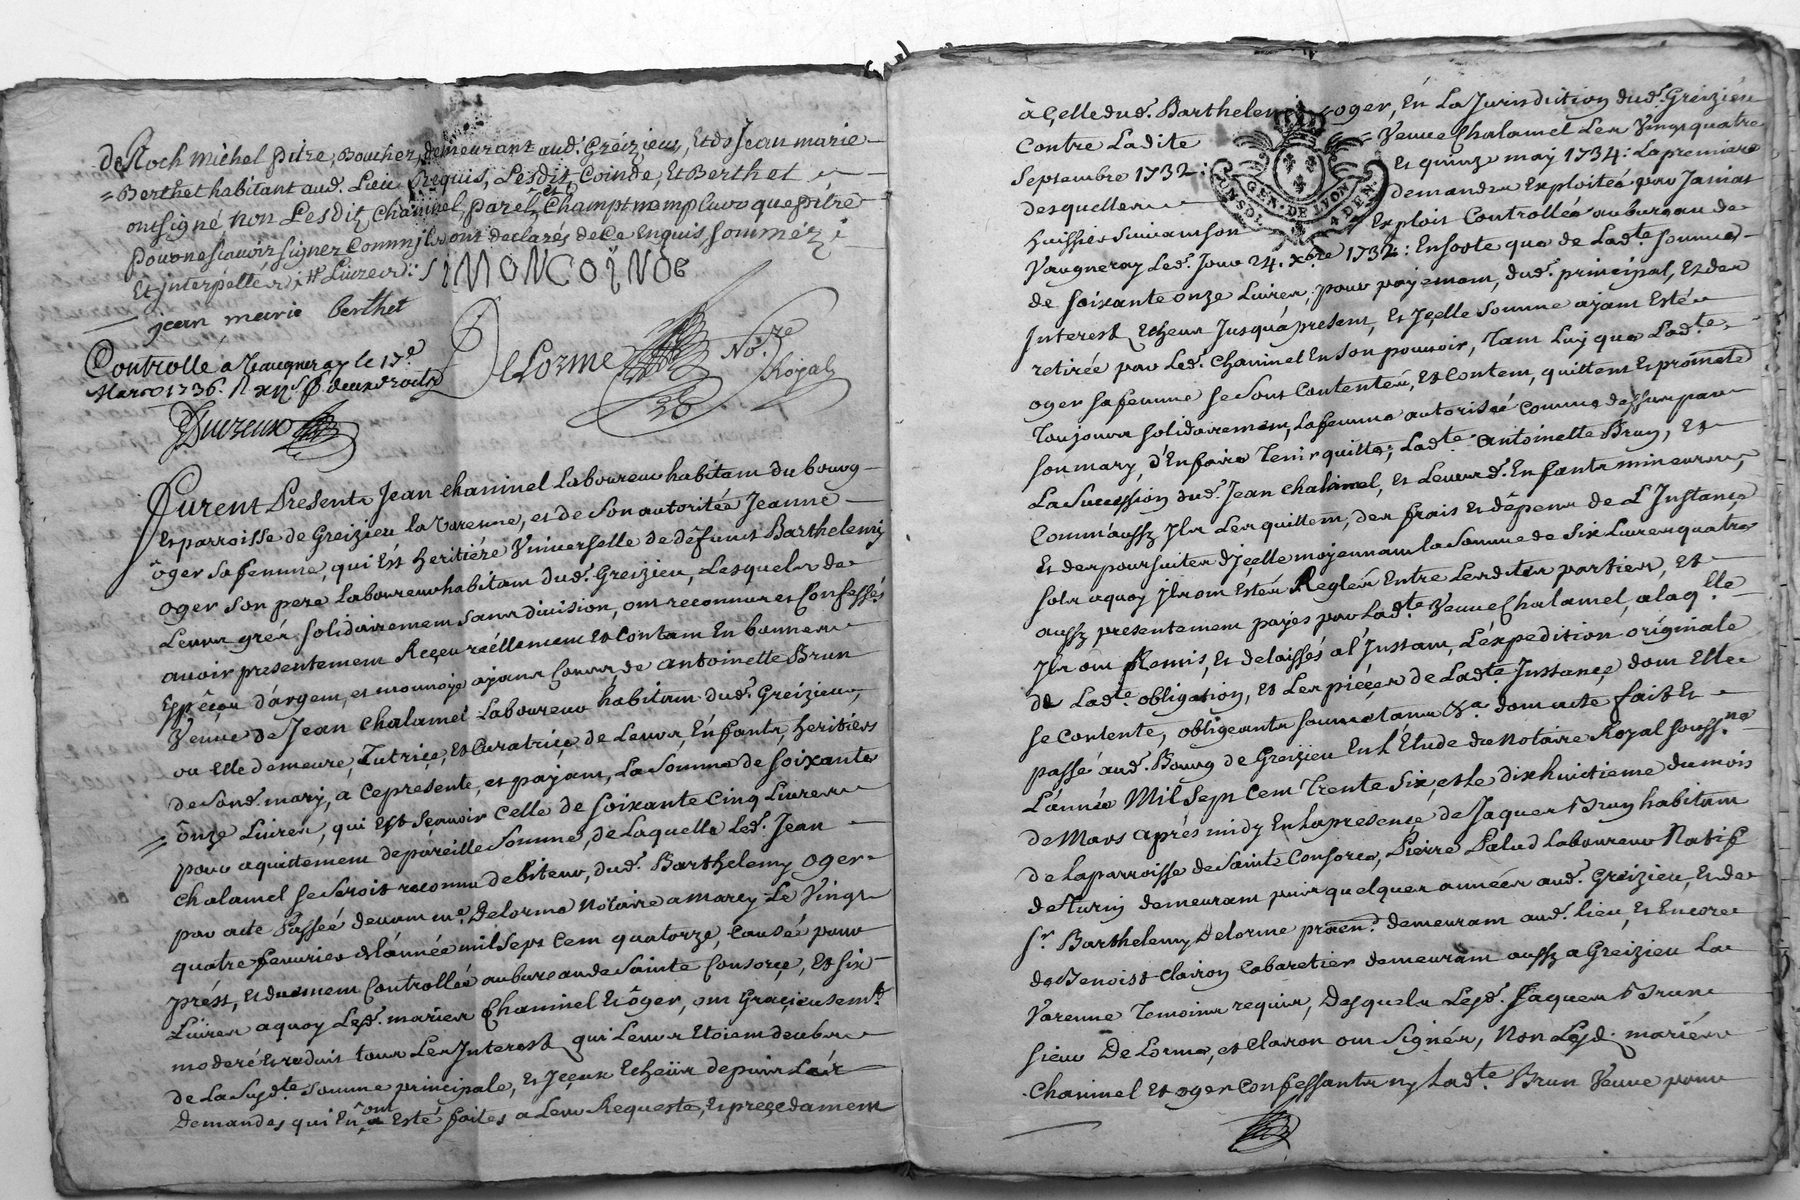 de Roch michel pitre, Boucher, demeurant aud. Gréizieu, Et ds Jean marie
= Berthet habitant aud. Lieu Requis, Lesdit, Coinde, Et Berthet
onsigné non Lesdit, chaninel, Champt nomplus que pitre
pour ne sçauoir signer Comm'ils ont declarés de Ce Enquis sommézé
Et jnterpéllér
SiMONCOiNDE
jean marie berthet
Controllé a Vaugneray le 17e
Mars 1736. R deux droits
DeLorme Nore Royal
Furent Presents Jean chaninel Laboureur habitant du bourg
Et parroisse de Greizieu la Varenne, et de son autoritée Jeanne
ôger sa femme, qui Est heritiére Vniverselle de défunt Barthelemy
oger son pere laboureur habitant dud. Greizieu, Lesquels de
Leurs gréz solidairement sans diuision, ont reconnus et Confessés
auoir presentement Reçeu réellement Et Contant En bonnes
Espêces d'argent, et monnoye ayant Cours, de antoinette Brun
Veuue de Jean chalamel Laboureur habitant dud. Greizieu,
ou Elle demeure, Tutrice, Et Curatrice de Leurs Enfants, heritiers
de Sond. mary, a Ce presente, et payant, La Somme de soixante
= ônze Livres, qui Est Sçauoir Celle de soixante Cinq Livres
pour aquittement de pareille Somme, de Laquelle Led. Jean
chalamel se Seroit reconnu debiteur, dud. Barthelemy oger
par acte Passéé deuant me. Delorme Notaire a marcy Le Vingt
quatre feurier de l'année mil sept Cent quatorze, Causéé pour
prést, Et duement Controlléé au bureau de Sainte Consorçe, Et six
Livres a quoy Lesd. mariés Chaninel Et ôger, ont Gracieusemt.
moderé Et reduit tous Les Interest, qui Leurs Etoient deubs
de La Susdte Somme principale, Et Jçeux Echeüs depuis Les
Demandes qui En ont Esté faites a Leur Requeste, Et preçedament
à Celle dud. Barthelemi oger, En La Jurisdiction dud. Greizieu
Contre Ladite Veuue Chalamel Les Vingt quatre
Septembre 1732: Et quinze may 1734: La premiere
desquelles demandes Exploitéé par Janiat
huissier Suiuant son Exploit Controlléé au bureau de
GEN. DE LYON
UN SOL 4 DEN.
Vaugneray Led. Jour 24. xbre 1732: En sorte que de Ladte somme
de soixante onze Livres, pour payement, dud. principal, Et des
Interest Echeus Jusqu'a present, Et Jçelle Somme ayant Estéé
retirée par Led. Chaninel En Son pouuoir, Tant Luy que Ladte
oger sa femme se Sont Contentés, Et Content, quittent Et promette
Toujours solidairement, La femme autoriséé Comme dessus par
son mary, d'En faire Tenir quitte; Ladte antoinette Brun, Et
La Sucession dud. Jean chalamel, Et Leursd. Enfants mineurs,
Comm'aussy Jls Les quittent, des frais Et dêpens de L'Instance
Et des poursuites d'Jcelle moyennant la Somme de Six Livres quatre
sols a quoy Jls ont Estés Reglés Entre Lesdites parties, Et
aussy presentement payés par Ladte Veuue Chalamel, a laqlle
Jls ont Remis, Et delaissés a l'Instant, L'éxpedition originale
de Ladte obligation, Et Les piéces de Ladte Instançe, dont Elle
se Contente, obligeants soumetants &a. dont acte fait Et
passé aud. Bourg de Greizieu En L'Etude du Notaire Royal soussne
L'année Mil Sept Cent Trente Six, et Le dixhuictieme du mois
de Mars aprés midy En La presence de Jaques Brun habitant
de La parroisse de Sainte Consorce, Pierre Palud Laboureur Natif
de Turin demeurant puis quelques années aud. Greizieu, Et de
sr. Barthelemy Delorme praend. demeurant aud. lieu, Et Encore
de Benoist Clairon Cabaretier demeurant aussy a Greizieu La
Varenne Temoins requis, Desquels Lesd. Jaques Brun
sieur De Lorme, et Clairon ont Signés, Non Lesd. mariés
Chaninel Et oger Confessants ny Ladte Brun Veuue pour